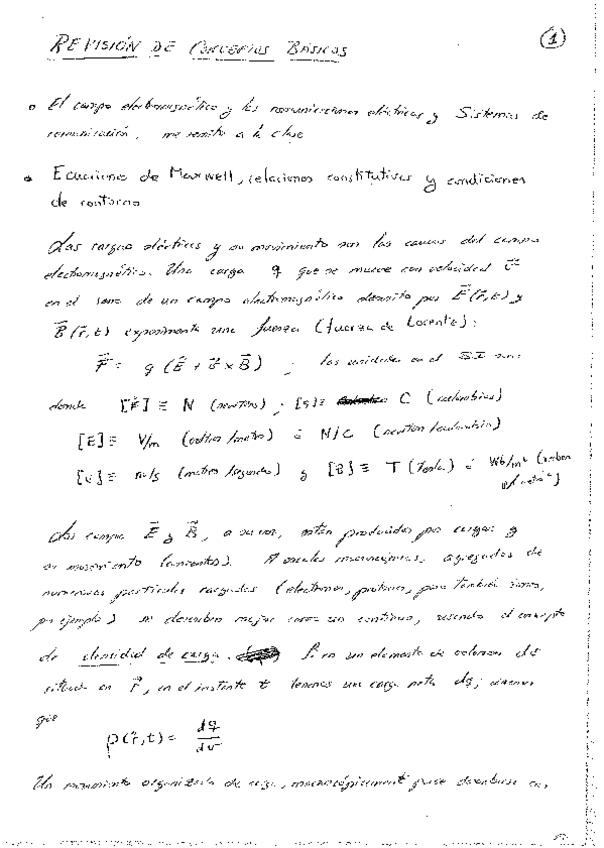 REVISIÓN DE CONCEPTOS BÁSICOS
1
El campo electromagnético y las comunicaciones eléctricas y Sistemas de
comunicación, me remito a la clase
Ecuaciones de Maxwell, relaciones constitutivas y condiciones
de contorno
Las cargas eléctricas y su movimiento son las causas del campo
electromagnético. Una carga q que se mueve con velocidad v⃗
en el seno de un campo electromagnético descrito por E⃗(r⃗,t) y
B⃗(r⃗,t) experimenta una fuerza (fuerza de Lorentz):
F⃗ = q (E⃗ + v⃗ x B⃗) ; las unidades en el SI son:
donde [F] ≡ N (newtons) ; [q] ≡ C (culombios)
[E] ≡ V/m (voltios/metro) ó N/C (newton/culombio)
[v] ≡ m/s (metros/segundo) y [B] ≡ T (Tesla) ó Wb/m² (weber
Los campos E⃗ y B⃗, a su vez, están producidos por cargas y
su movimiento (corrientes). A escalas macroscópicas, agregados de
numerosas partículas cargadas (electrones, protones, pero también iones,
por ejemplo) se describen mejor como un continuo, usando el concepto
de densidad de carga. Si en un elemento de volumen dv
situado en r⃗, en el instante t tenemos una carga neta dq,
que
ρ(r⃗,t) = dq/dv
Un movimiento organizado de carga, macroscópicamente puede describirse